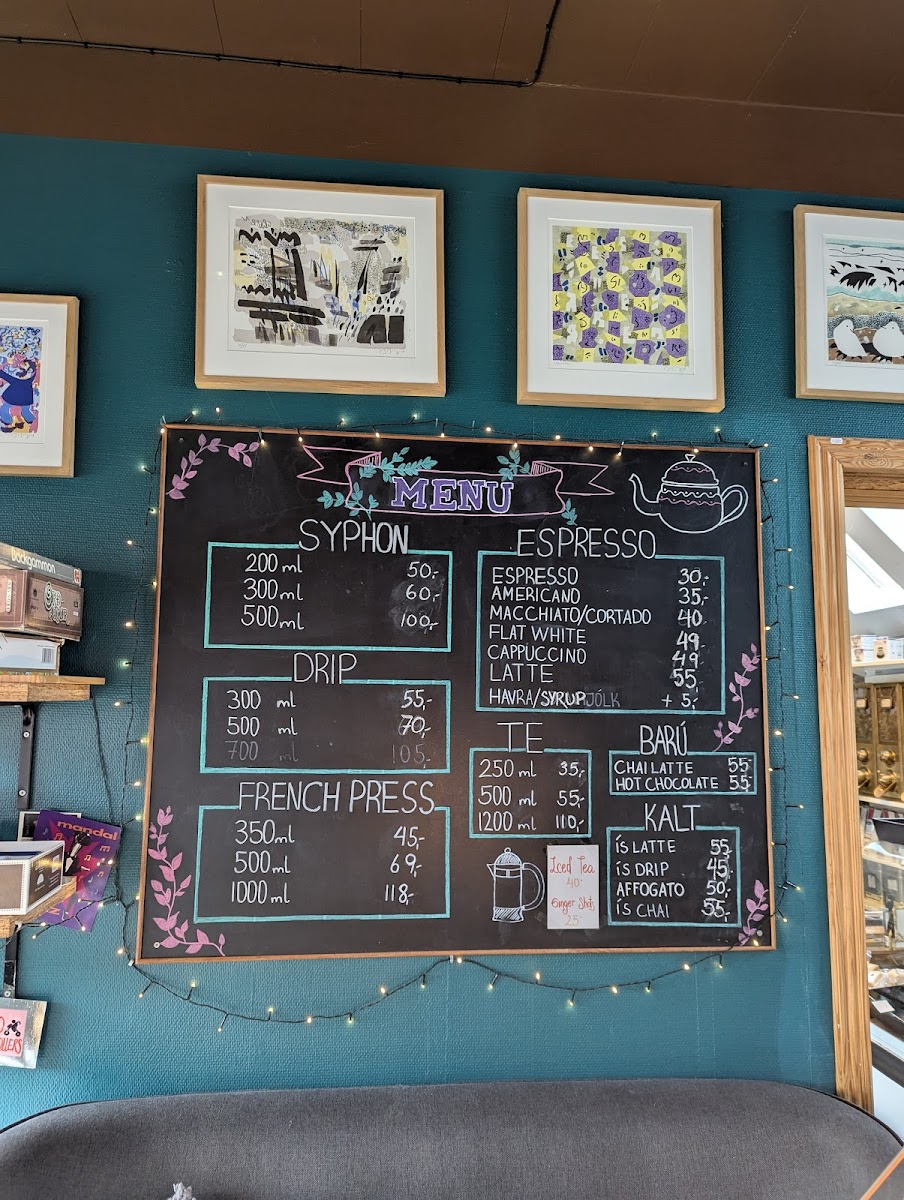 MENU
SYPHON
200 ml 50,-
300 ml 60,-
500 ml 100,-
DRIP
300 ml 55,-
500 ml 70,-
700 ml 105,-
FRENCH PRESS
350 ml 45,-
500 ml 69,-
1000 ml 118,-
ESPRESSO
ESPRESSO 30,-
AMERICANO 35,-
MACCHIATO/CORTADO 40,-
FLAT WHITE 49,-
CAPPUCCINO 49,-
LATTE 55,-
HAVRA/SYRUP + 5,-
TE
250 ml 35,-
500 ml 55,-
1200 ml 110,-
BARÚ
CHAI LATTE 55-
HOT CHOCOLATE 55-
KALT
ÍS LATTE 55,-
ÍS DRIP 45,-
AFFOGATO 50,-
ÍS CHAI 55,-
Iced Tea
40-
Ginger Shots
25-
Backgammon
mandal